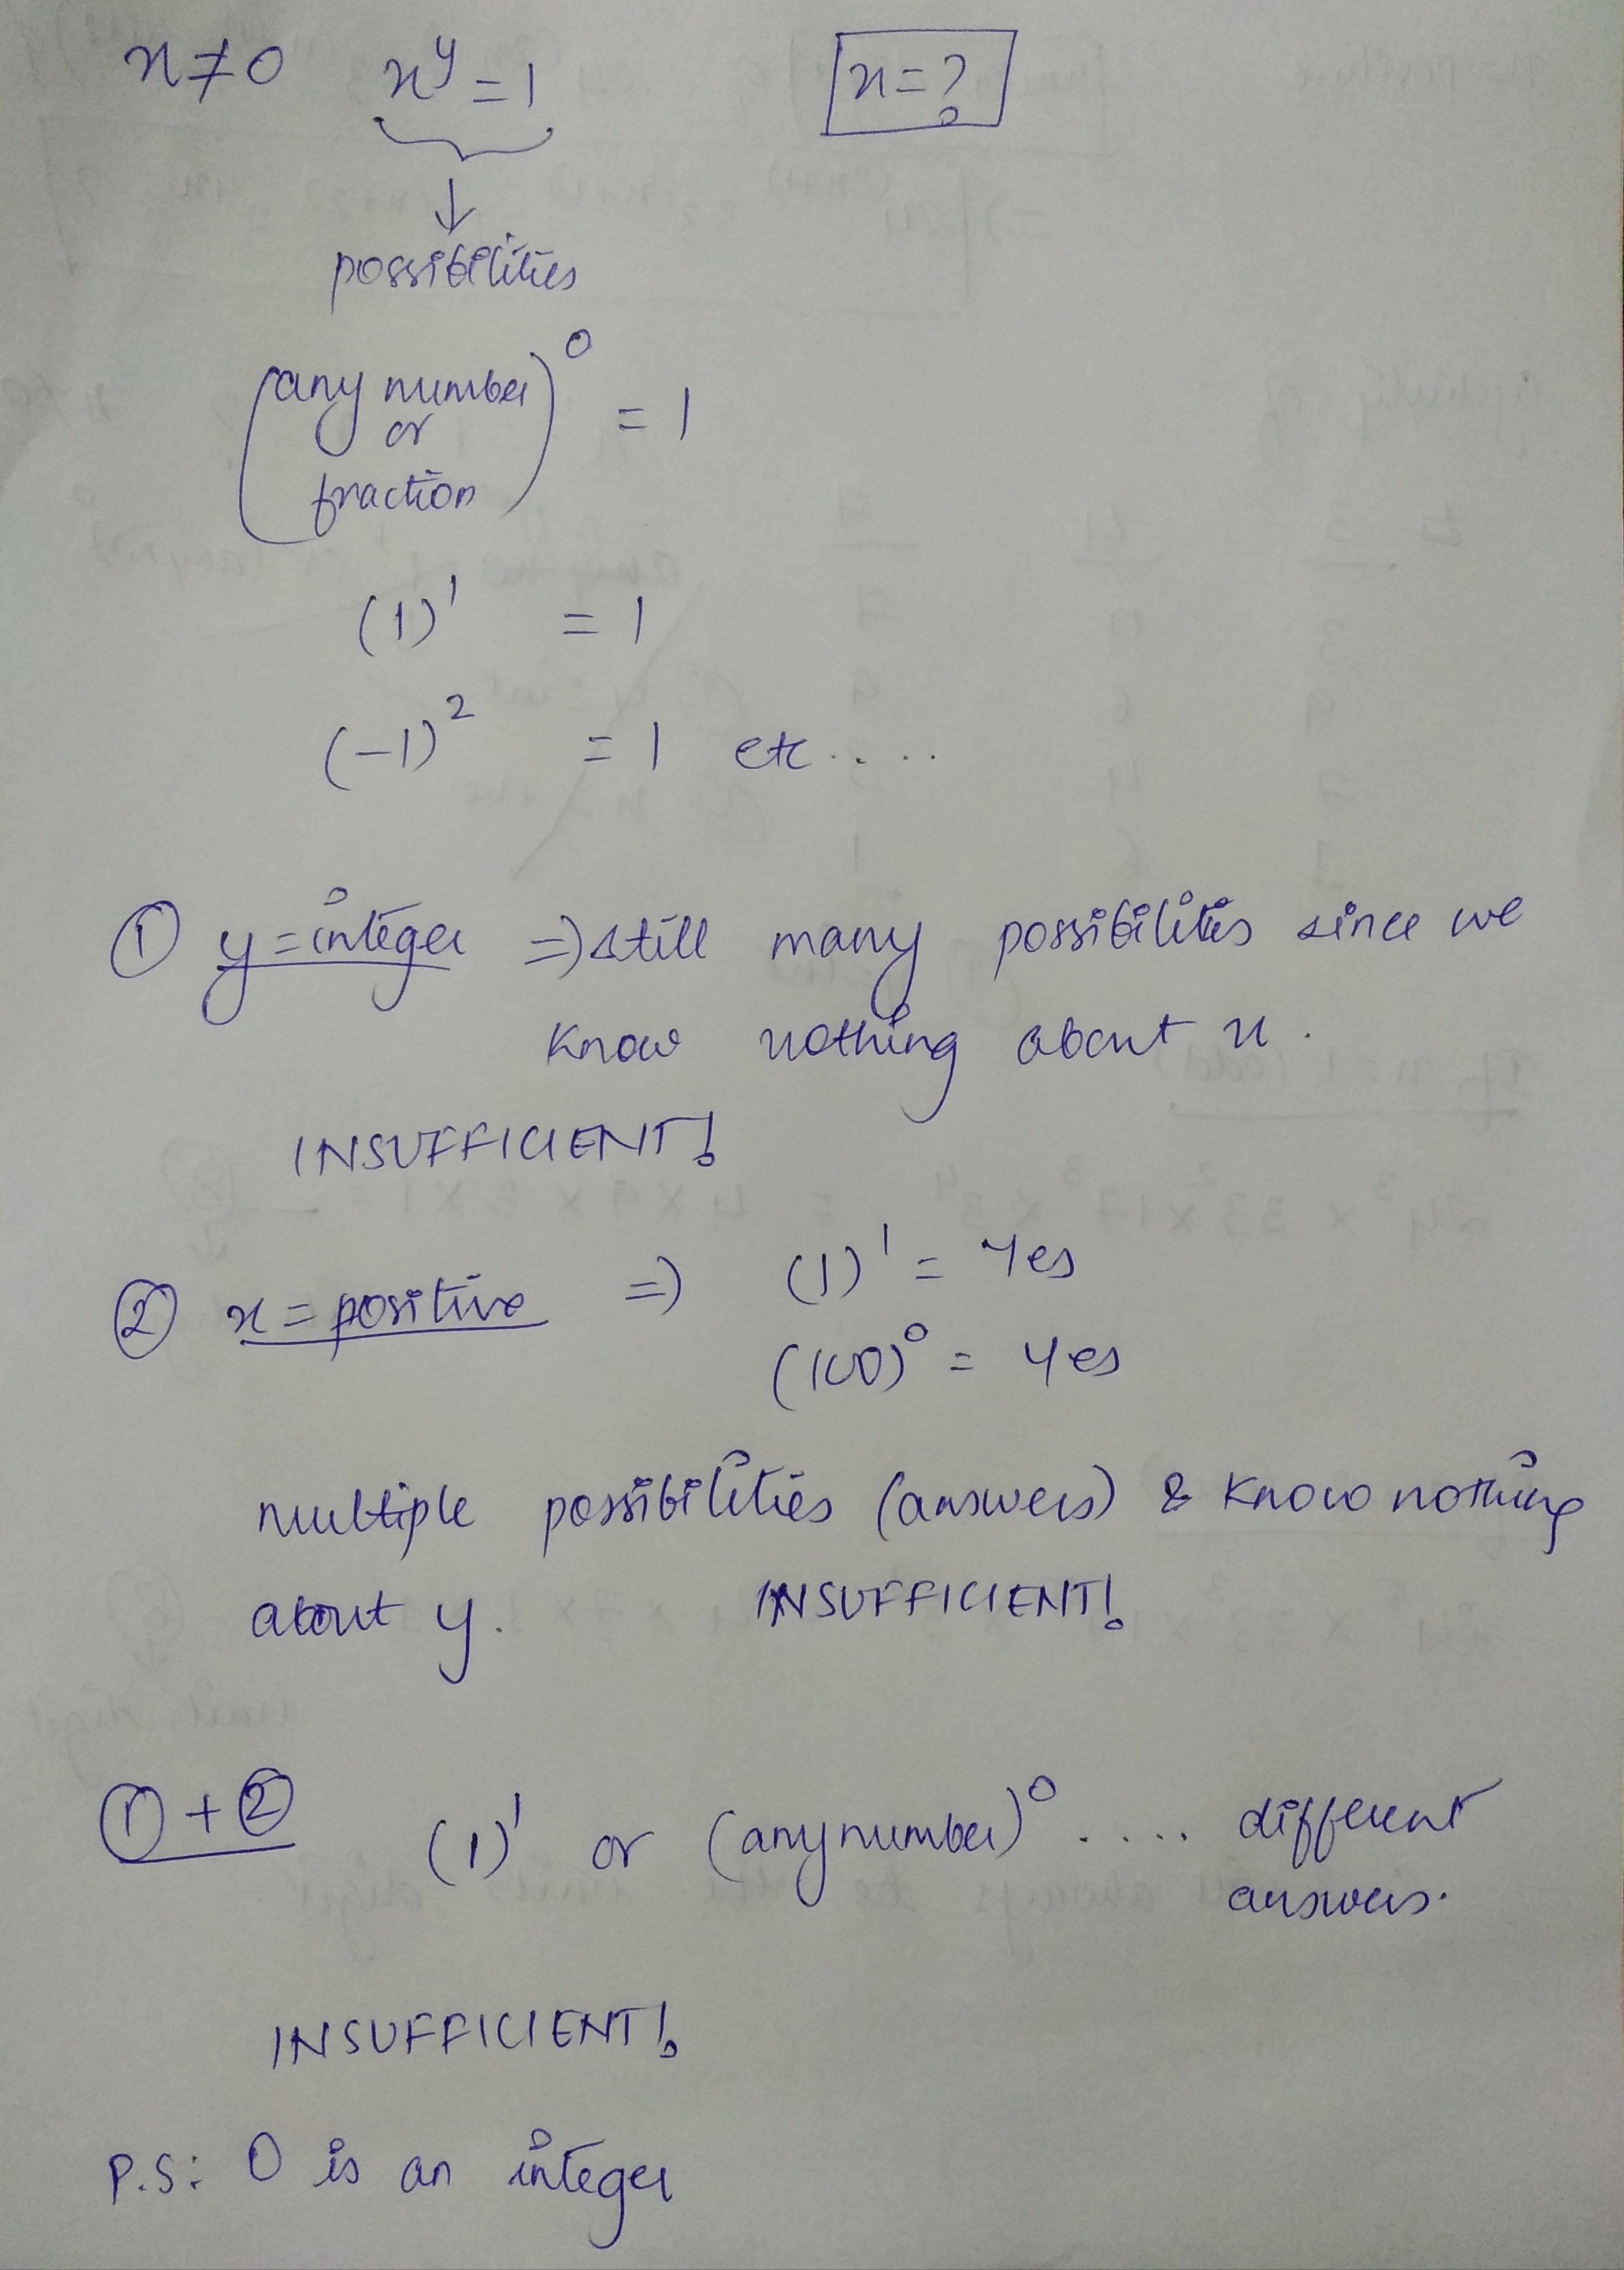 x≠0 x^y = 1 x = ?
possibilities
(any number or fraction)^0 = 1
(1)^1 = 1
(-1)^2 = 1 etc.....
① y = integer => still many possibilities since we
know nothing about x.
INSUFFICIENT!
② x = positive => (1)^1 = Yes
(100)^0 = Yes
multiple possibilities (answers) & know nothing
about y. INSUFFICIENT!
① + ② (1)^1 or (any number)^0 .... different
answers.
INSUFFICIENT!
P.S: 0 is an integer